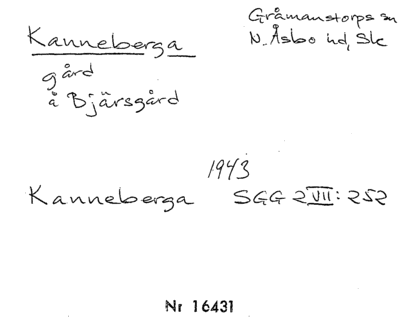 Kanneberga
Gråmanstorps sn
N. Åsbo hd, Sk
gård
å Bjärsgård
1943
Kanneberga SGG 2 VII: 252
Nr 16431